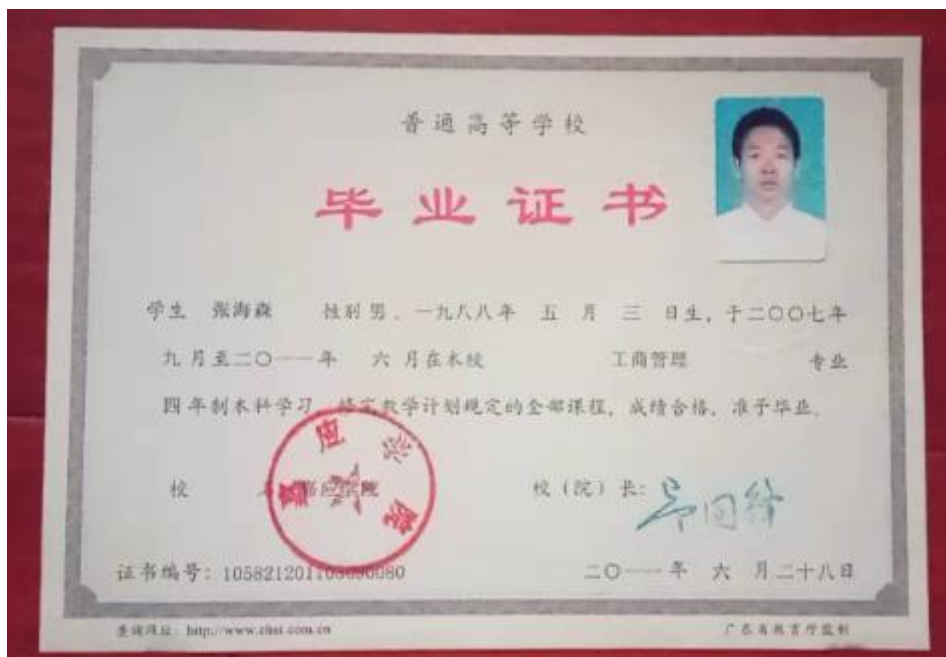 普通高等学校
毕业证书
学生 张海森 性别 男，一九八八年 五 月 三 日生，于二〇〇七年
九 月至二〇一一年 六 月在本校 工商管理 专业
四 年制本科学习，修完教学计划规定的全部课程，成绩合格，准予毕业。
校 名：嘉应学院 校（院）长：
嘉应学院
证书编号：
二〇一一年 六 月二十八日
查询网址：http://www.chsi.com.cn
广东省教育厅监制